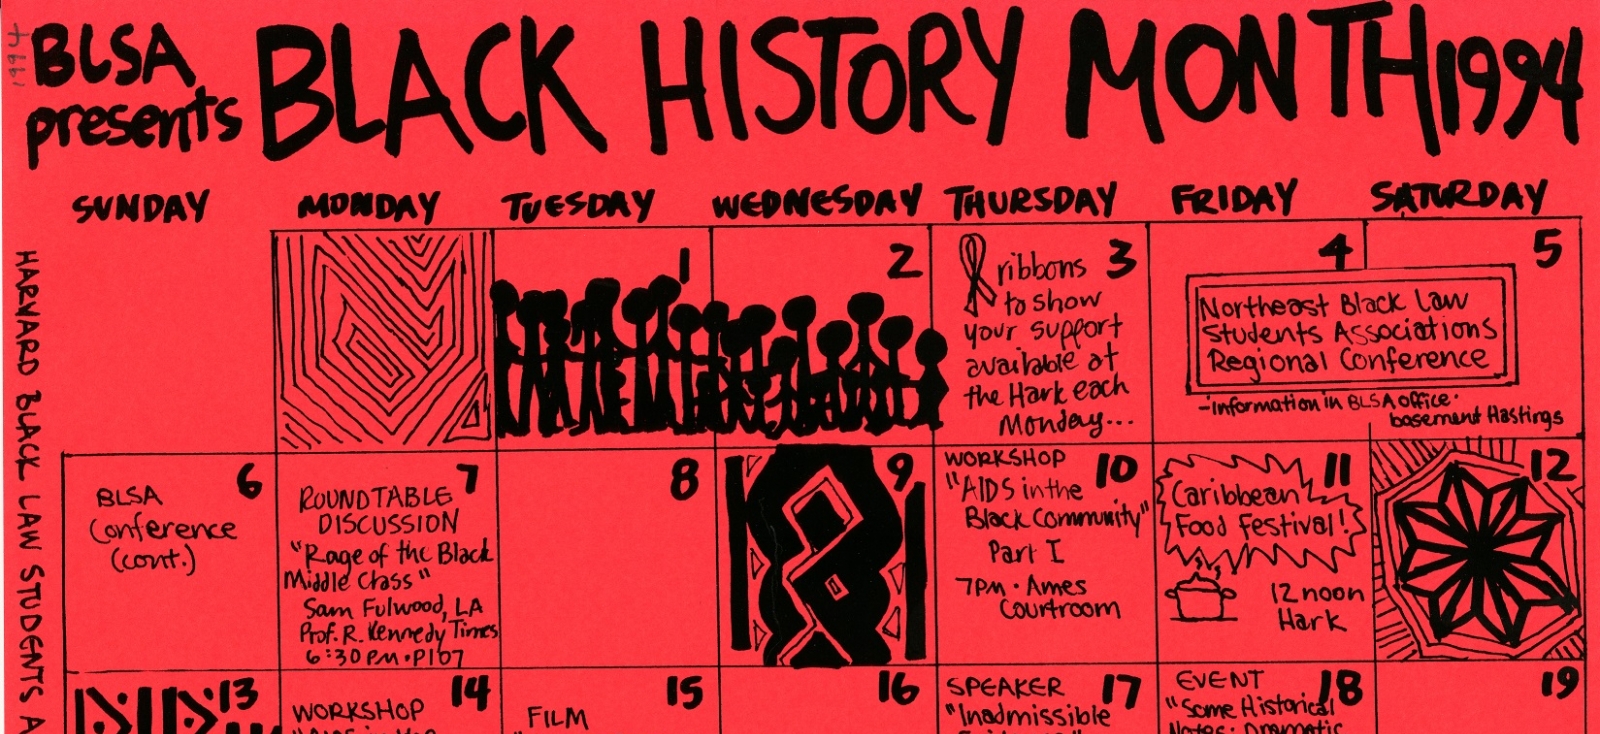 1994
BLSA
presents
BLACK HISTORY MONTH 1994
SUNDAY MONDAY TUESDAY WEDNESDAY THURSDAY FRIDAY SATURDAY
HARVARD BLACK LAW STUDENTS A
1
2
3
ribbons
to show
your support
available at
the Hark each
Monday...
4
5
Northeast Black Law
Students Associations
Regional Conference
-information in BLSA office·
basement Hastings
6
BLSA
Conference
(cont.)
7
ROUNDTABLE
DISCUSSION
"Rage of the Black
Middle Class"
Sam Fulwood, LA
Prof. R. Kennedy Times
6:30 PM · P107
8
9
10
WORKSHOP
"AIDS in the
Black Community"
Part I
7PM · Ames
Courtroom
11
Caribbean
Food Festival!
12 noon
Hark
12
13
14
WORKSHOP
15
FILM
16
17
SPEAKER
"Inadmissible
18
EVENT
"Some Historical
Notes: Dramatic
19